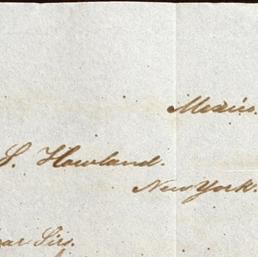 Mexico.
S. Howland.
New York.
ear Sirs.